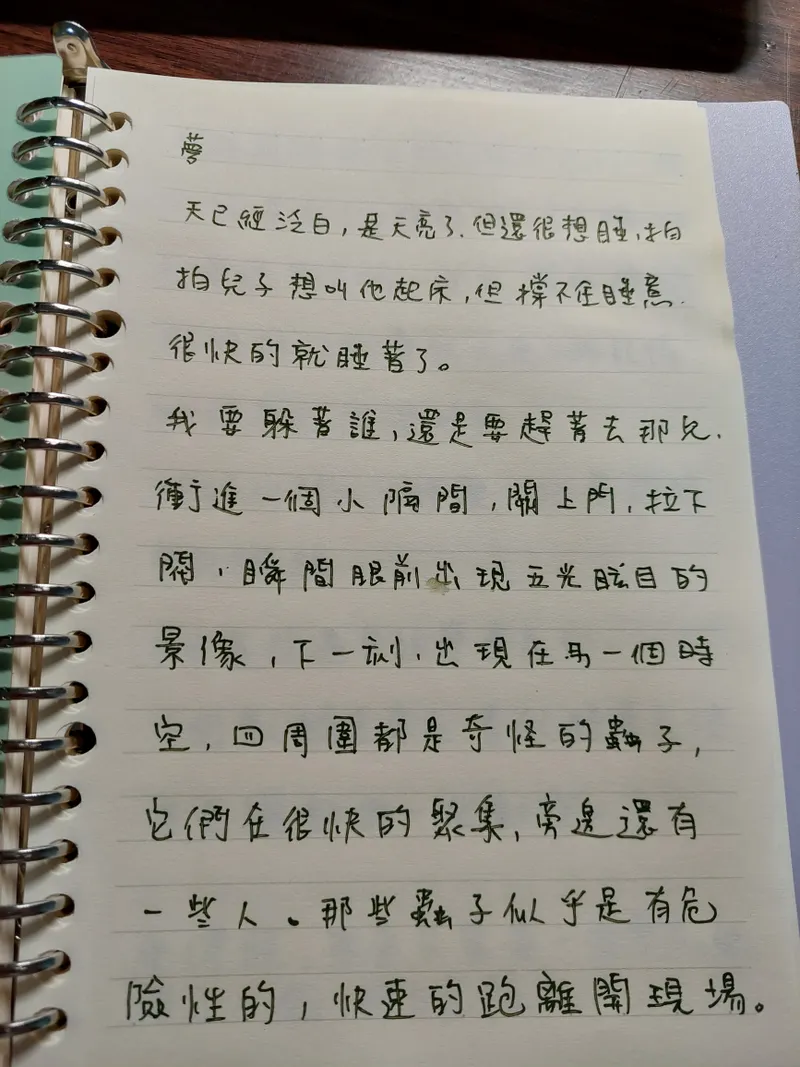 夢
天已經泛白,是天亮了.但還很想睡,拍
拍兒子想叫他起床,但撐不住睡意.
很快的就睡著了。
我要躲著誰,還是要趕著去那兒.
衝進一個小隔間,關上門,拉下
閘,瞬間眼前出現五光眩目的
景像,下一刻,出現在另一個時
空,四周圍都是奇怪的蟲子,
它們在很快的聚集,旁邊還有
一些人。那些蟲子似乎是有危
險性的,快速的跑離開現場。